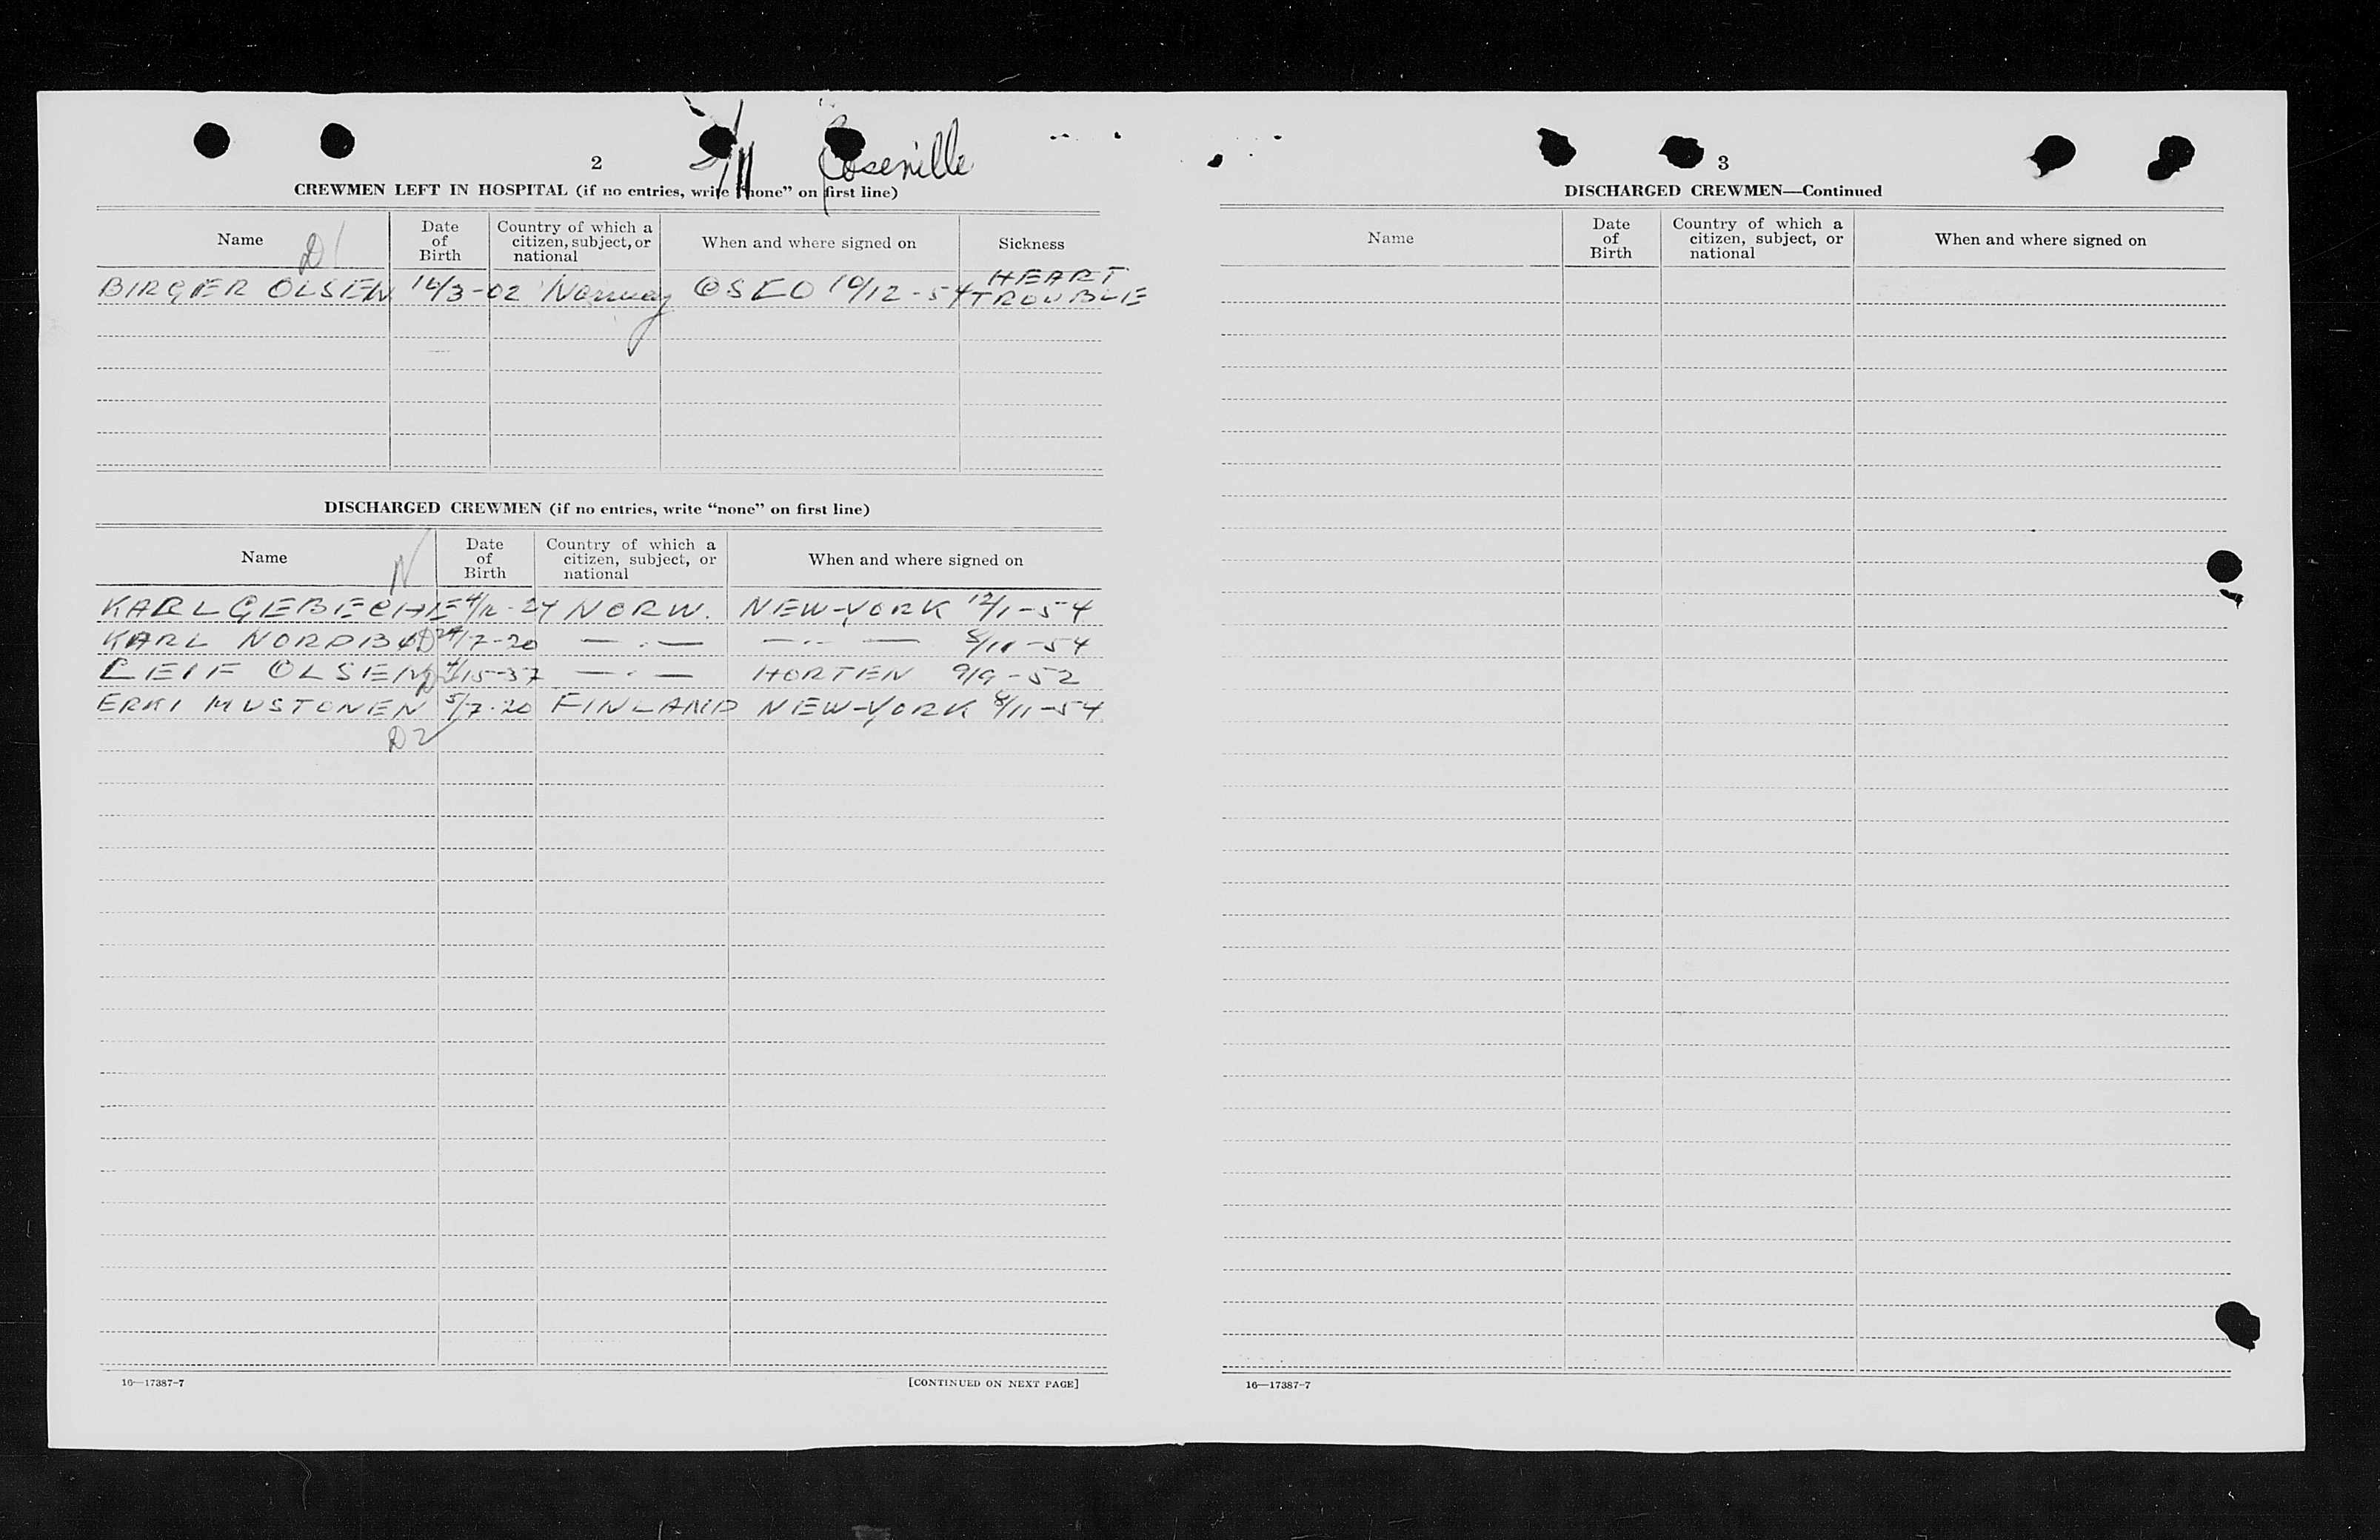 2
Roseville
CREWMEN LEFT IN HOSPITAL (if no entries, write "none" on first line)
Name
Date of Birth
Country of which a citizen, subject, or national
When and where signed on
Sickness
D1
BIRGER OLSEN 16/3-02 Norway OSLO 10/12-54 HEART TROUBLE
DISCHARGED CREWMEN (if no entries, write "none" on first line)
Name
Date of Birth
Country of which a citizen, subject, or national
When and where signed on
N
KARL GEBECHIE 24 NORW. NEW-YORK 12/1-54
KARL 7-20 —·— —··— 8/11-54
LEIF OLSEN —·— HORTEN 9/9-52
ERKI MUSTONEN 5/7-20 FINLAND NEW-YORK 8/11-54
D2
16—17387-7
[CONTINUED ON NEXT PAGE]
3
DISCHARGED CREWMEN—Continued
Name
Date of Birth
Country of which a citizen, subject, or national
When and where signed on
16—17387-7